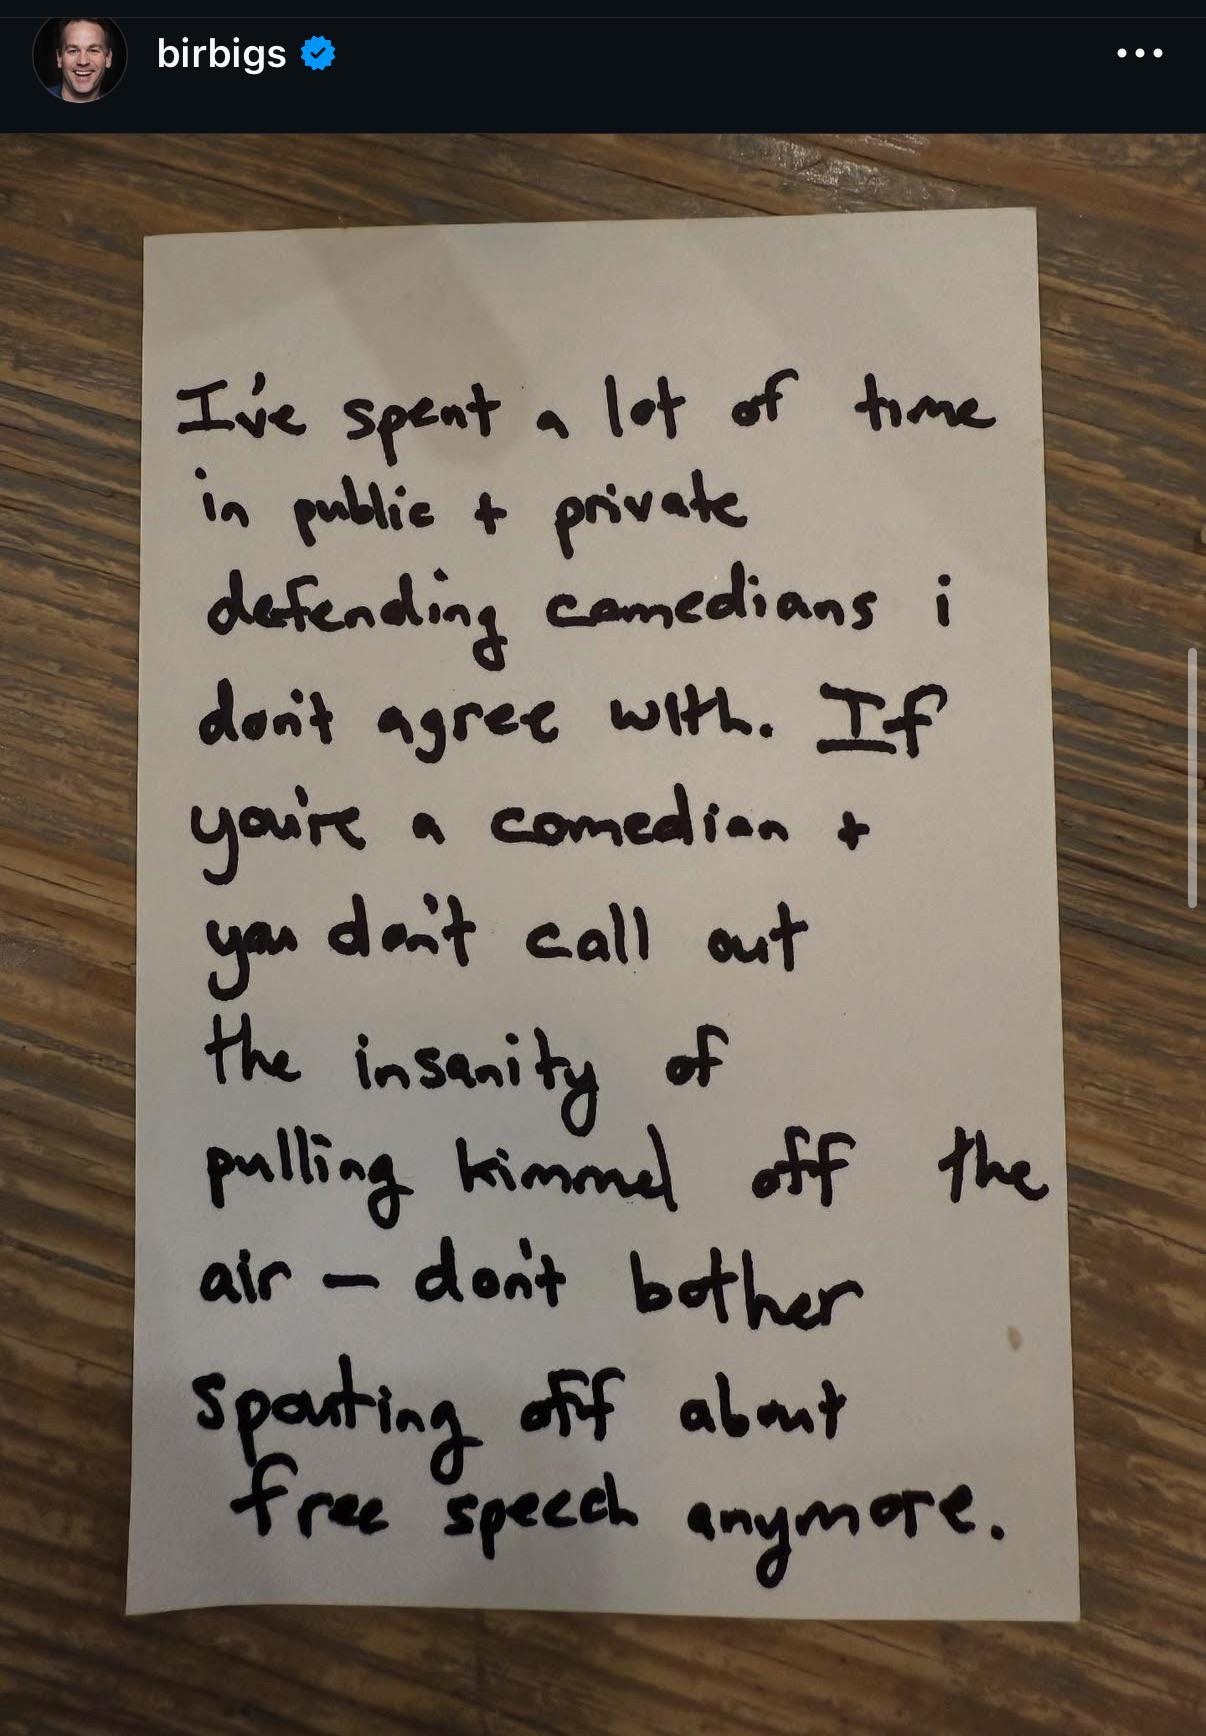 birbigs
I've spent a lot of time
in public + private
defending comedians i
don't agree with. If
you're a comedian +
you don't call out
the insanity of
pulling kimmel off the
air — don't bother
spouting off about
free speech anymore.